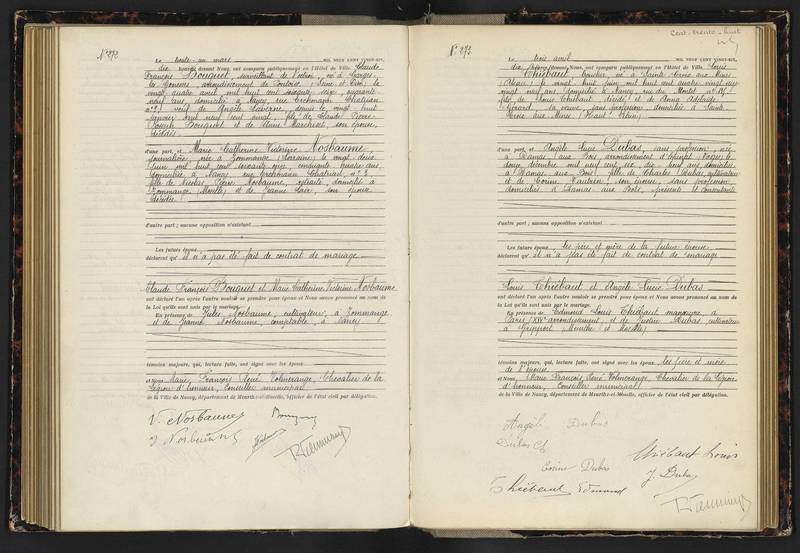 N° 272
Le trente un mars MIL NEUF CENT VINGT-SIX,
dix heures devant Nous, ont comparu publiquement en l'Hôtel de Ville. Claude
François Bouquet, surveillant de l'octroi, né à Garges
les Gonesse arrondissement de Pontoise (Seine et Oise) le
vingt quatre avril mil huit cent soixante seize, quarante
neuf ans, domicilié à Nancy rue Erckmann Chatrian
n° 3, veuf de depuis le vingt huit
janvier mil neuf cent vingt, fils de Claude Pierre
Joseph Bouquet et de Marchand, son épouse,
décédés
d'une part, et Marie Catherine Victorine Nosbaume
journalière, née à Zommange (Lorraine) le vingt deux
juin mil huit cent soixante onze, cinquante quatre ans,
domiciliée à Nancy rue Erckmann Chatrian, n° 3
fille de Nicolas Pierre Nosbaume, cultivateur, domicilié à
Zommange (Moselle) et de Jeanne son épouse
décédée
d'autre part; aucune opposition n'existant
Les futurs époux
déclarent qu'il n'a pas été fait de contrat de mariage
Claude François Bouquet et Marie Catherine Victorine Nosbaume
ont déclaré l'un après l'autre vouloir se prendre pour époux et Nous avons prononcé au nom de
la Loi qu'ils sont unis par le mariage.
En présence de Jules Nosbaume, cultivateur, à Zommange
et de Jeanne Nosbaume, comptable, à Nancy
témoins majeurs, qui, lecture faite, ont signé avec les époux
et Nous Marie François René Volmerange, Chevalier de la
Légion d'honneur, Conseiller municipal
de la Ville de Nancy, département de Meurthe-et-Moselle, officier de l'état civil par délégation.
V. Nosbaume Bouquet
J Nosbaume
Cent trente huit
N° 273
Le trois avril MIL NEUF CENT VINGT-SIX,
dix heures devant Nous, ont comparu publiquement en l'Hôtel de Ville. Louis
Thiébaut, boucher, né à Sainte Croix aux Mines
(Alsace) le vingt huit juin mil huit cent quatre vingt seize
vingt neuf ans, domicilié à Nancy, rue du Montet n°
fils de Louis Thiébaut décédé et de Anna Adélaïde
Girard, sa veuve, sans profession, domiciliée à Sainte
Croix aux Mines (Haut Rhin)
d'une part, et Angèle Lucie Dubas, sans profession, née
à Damas aux Bois arrondissement d'Epinal (Vosges) le
douze décembre mil neuf cent six, dix neuf ans, domiciliée
à Damas aux Bois fille de Charles Dubas, cultivateur
et de Corine Vautrin, son épouse, sans profession,
domiciliés à Damas aux Bois, présents et consentants
d'autre part; aucune opposition n'existant
Les futurs époux, les père et mère de la future épouse
déclarent qu'il n'a pas été fait de contrat de mariage
Louis Thiébaut et Angèle Lucie Dubas
ont déclaré l'un après l'autre vouloir se prendre pour époux et Nous avons prononcé au nom de
la Loi qu'ils sont unis par le mariage.
En présence de Edmond Louis Thiébaut à
Paris (XIVe arrondissement) et de Justin Dubas cultivateur
à Gripport Meurthe (et Moselle)
témoins majeurs, qui, lecture faite, ont signé avec les époux, les père et mère
de l'épouse
et Nous, Marie François René Volmerange, Chevalier de la Légion
d'honneur, Conseiller municipal
de la Ville de Nancy, département de Meurthe-et-Moselle, officier de l'état civil par délégation.
Angèle Dubas
Dubas Ch
Corine Dubas
Thiébaut Louis
J. Dubas
Thiébaut Edmond